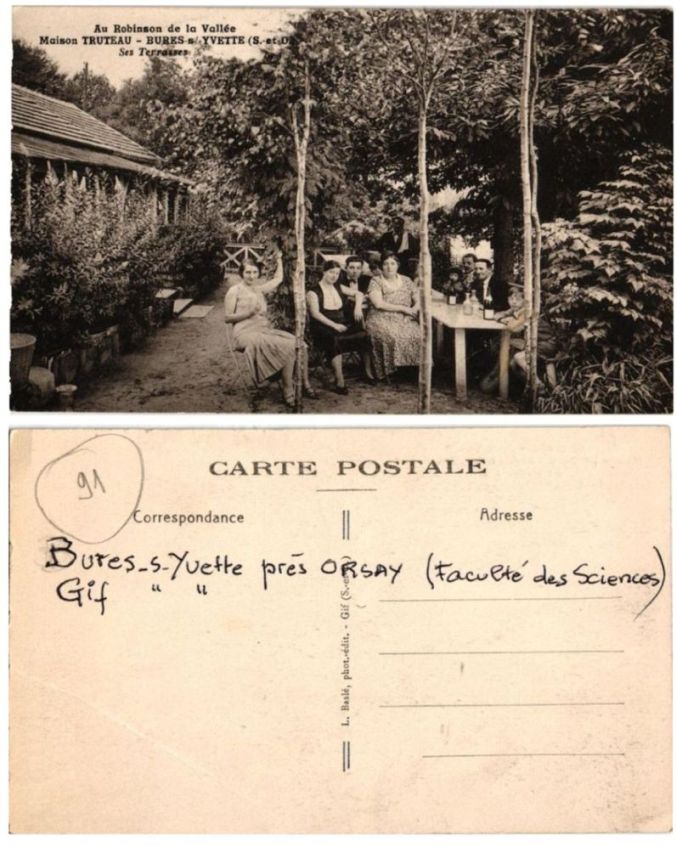 Au Robinson de la Vallée
Maison TRUTEAU - BURES-s/-YVETTE (S.-et-O.)
Ses Terrasses
91
CARTE POSTALE
Correspondance
Adresse
Bures-s-Yvette près ORSAY (Faculté des Sciences)
Gif " "
L. Baslé, phot.-édit. - Gif (S.-et-